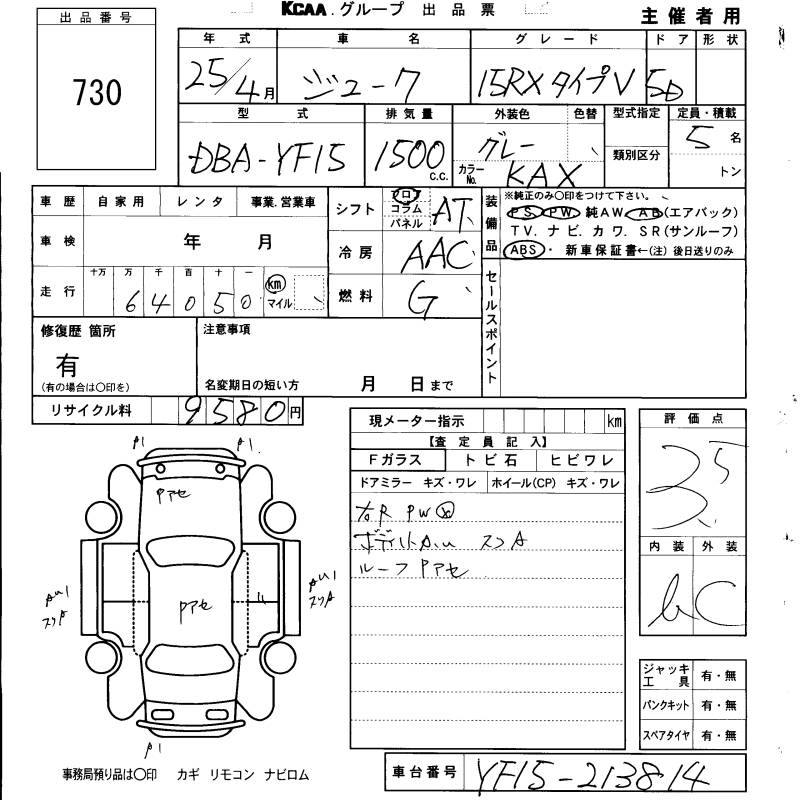 KCAA.グループ 出品票
主催者用
出品番号
730
年式 車名 グレード ドア 形状
25/4月 ジューク 15RXタイプV 5D
型式 排気量 外装色 色替 型式指定 定員・積載
DBA-YF15 1500c.c. グレー 5名
カラーNo. KAX 類別区分 トン
車歴 自家用 レンタ 事業.営業車
車検 年 月
走行 十万 万 千 百 十 一
64050 km マイル
シフト フロア コラム パネル AT
冷房 AAC
燃料 G
装備品
※純正のみ○印をつけて下さい。
PS PW 純AW. AB(エアバック)
TV. ナビ. カワ. SR(サンルーフ)
ABS・新車保証書←(注)後日送りのみ
セールスポイント
修復歴 箇所
有
(有の場合は○印を)
注意事項
名変期日の短い方 月 日まで
リサイクル料 9580円
現メーター指示 km
【査定員記入】
Fガラス トビ石 ヒビワレ
ドアミラー キズ・ワレ ホイール(CP) キズ・ワレ
右R PW
ルーフ Pアセ
評価点
3.5
内装 外装
b C
A1 A1
Pアセ
Pアセ
AU1
スリA
AU1
スリA
A1
ジャッキ工具 有・無
パンクキット 有・無
スペアタイヤ 有・無
事務局預り品は○印 カギ リモコン ナビロム
車台番号 YF15-213814